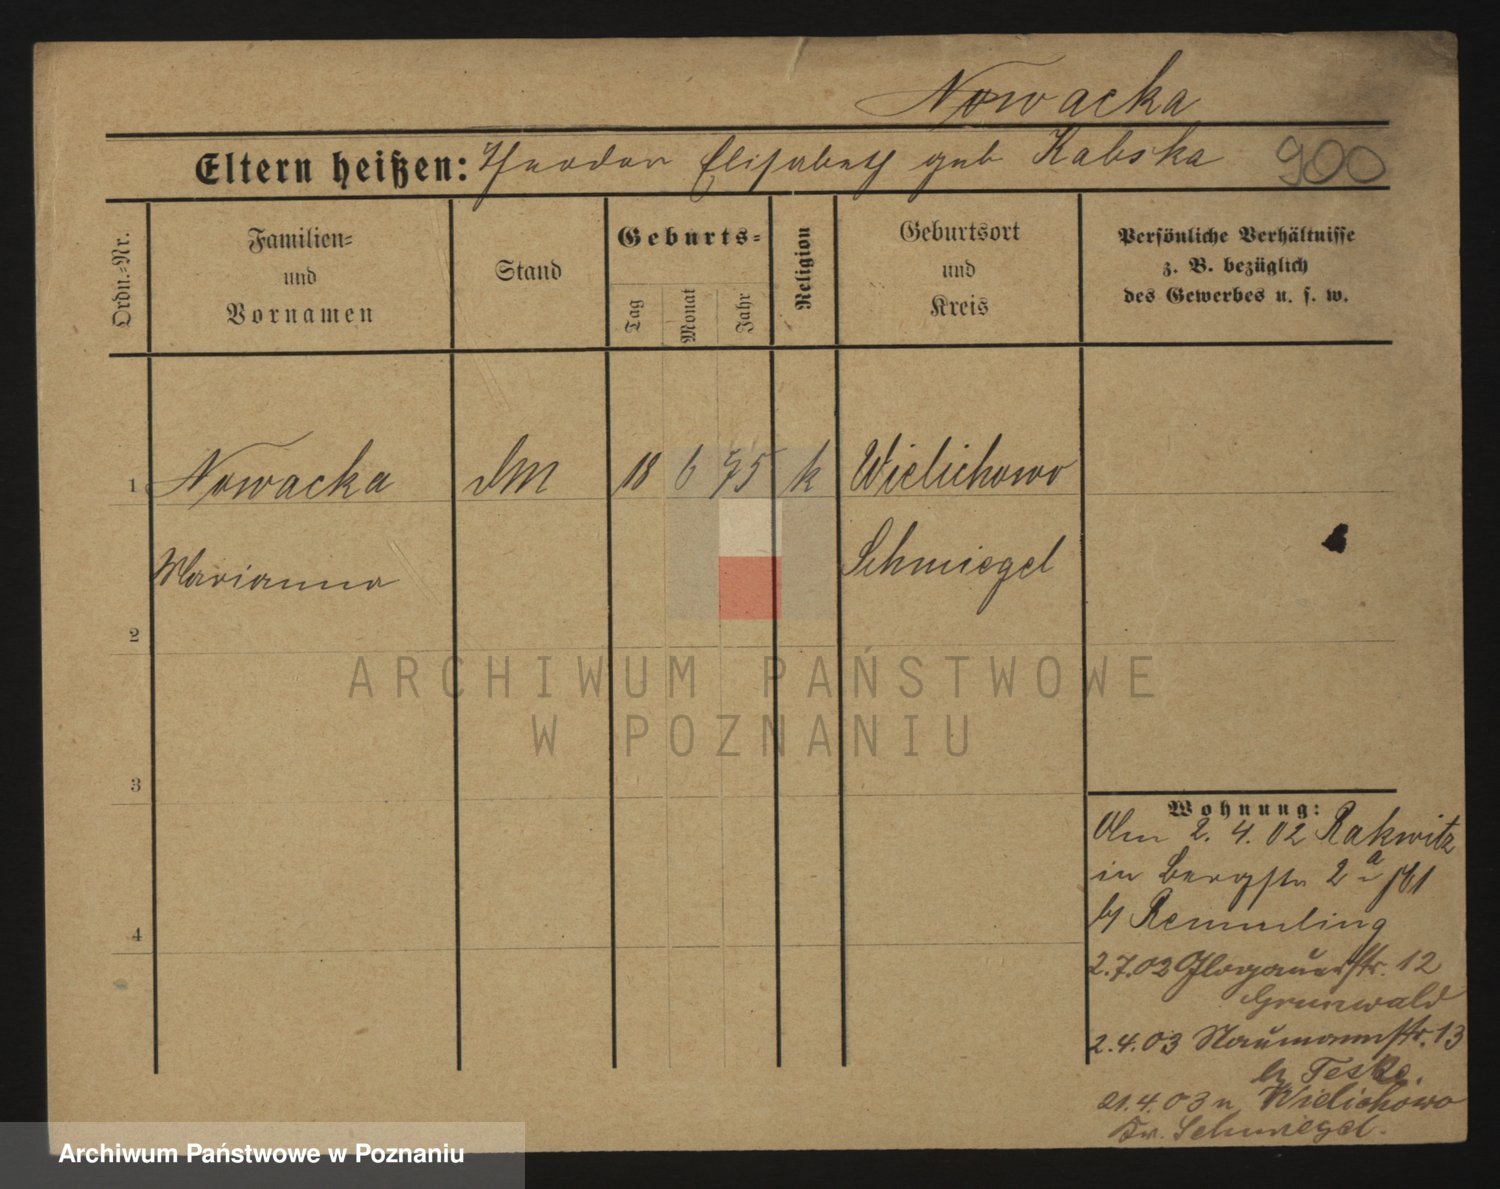 Nowacka
Eltern heißen: Theodor Elisabeth geb Kabska 900
Ordn.-Nr.
Familien-
und
Vornamen
Stand
Geburts-
Tag
Monat
Jahr
Religion
Geburtsort
und
Kreis
Persönliche Verhältnisse
z. B. bezüglich
des Gewerbes u. s. w.
1 Nowacka DM 18 6 75 k Wielichowo
Marianna Schmiegel
2
ARCHIWUM PAŃSTWOWE
W POZNANIU
3
Wohnung:
2. 4. 02 Rakwitz
in Bergstr 2a
b/ Remmling
4
2.7.02 Glogauerstr. 12
Grunwald
2.4.03 Naumannstr. 13
b/ Teske.
21.4.03 n Wielichowo
Kr. Schmiegel.
Archiwum Państwowe w Poznaniu